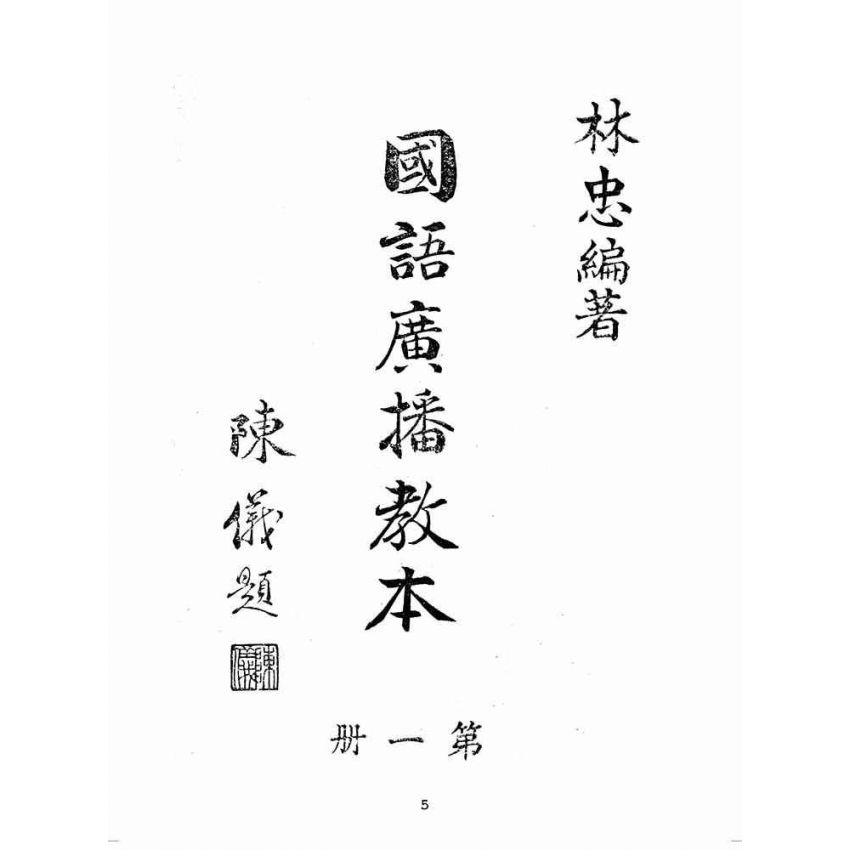 林忠編著
國語廣播教本
陳儀題
陳儀
第一册
5